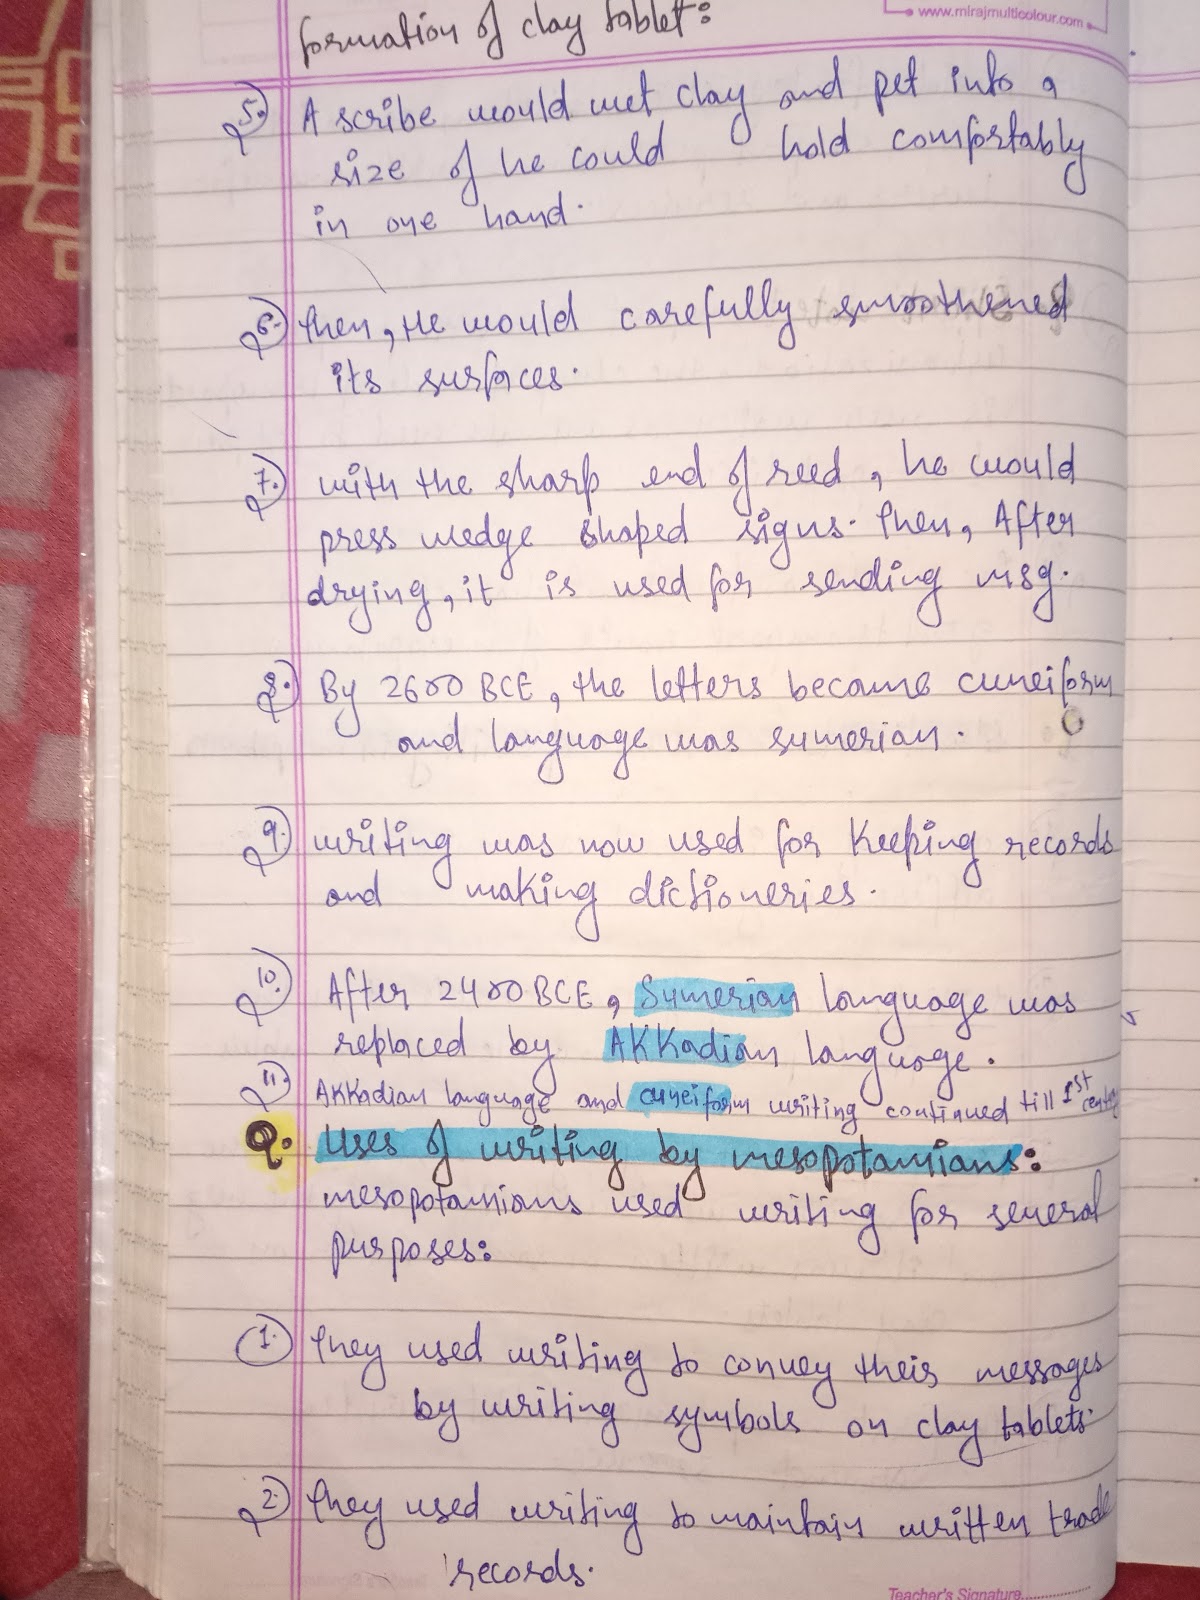 www.mirajmulticolour.com
formation of clay tablet:
5. A scribe would wet clay and pet into a
size of he could hold comfortably
in one hand.
6. Then, He would carefully smoothened
its surfaces.
7. with the sharp end of reed, he would
press wedge shaped signs. Then, After
drying, it is used for sending msg.
8. By 2600 BCE, the letters became cuneiform
and language was sumerian.
9. writing was now used for keeping records
and making dictioneries.
10. After 2400 BCE, Sumerian language was
replaced by AKKadian language.
11. AKKadian language and cuneiform writing continued till 1st
Q. Uses of writing by mesopotamians:
mesopotamians used writing for several
purposes:
1. They used writing to convey their messages
by writing symbols on clay tablets.
2. They used writing to maintain written trade
records.
Teacher's Signature